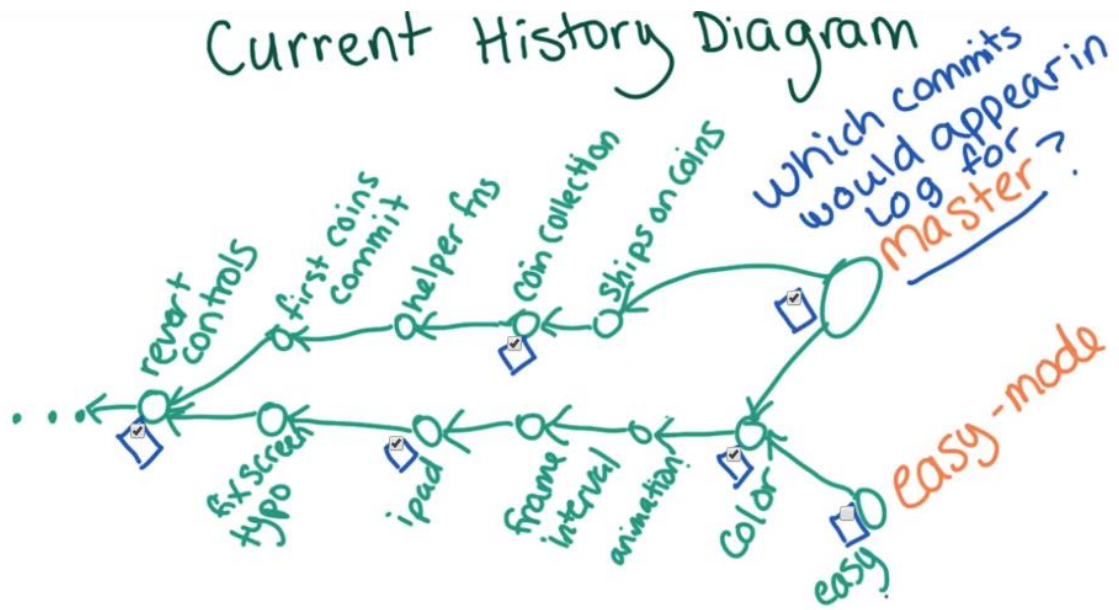 Current History Diagram
Which commits
would appear in
log for
master ?
revert
controls
first coins
commit
helper fns
coin collection
ships on coins
...
fix screen
typo
ipad
frame
interval
animation
color
easy
easy-mode